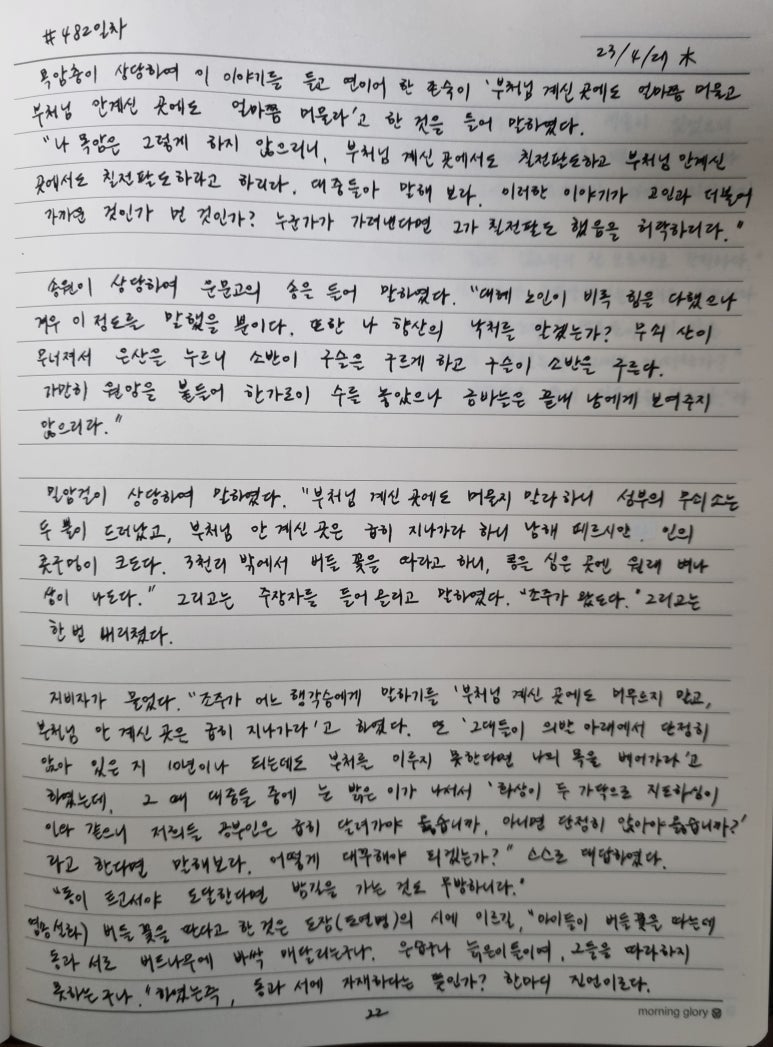 #482일차
23/4/27 木
목암충이 상당하여 이 이야기를 들고 연이어 한 존숙이 '부처님 계신 곳에도 얼마쯤 머물고
부처님 안계신 곳에도 얼마쯤 머물라'고 한 것을 들어 말하였다.
"나 목암은 그렇게 하지 않으리니, 부처님 계신 곳에서도 칠전팔도하고 부처님 안계신
곳에서도 칠전팔도하라고 하리라. 대중들아 말해 보라. 이러한 이야기가 고인과 더불어
가까운 것인가 먼 것인가? 누군가가 가려낸다면 그가 칠전팔도 했음을 허락하리라."
송원이 상당하여 운문고의 송을 들어 말하였다. "대혜 노인이 비록 힘을 다했으나
겨우 이 정도를 말했을 뿐이다. 또한 나 향산의 낙처를 알겠는가? 무쇠 산이
무너져서 은산을 누르니 소반이 구슬은 구르게 하고 구슬이 소반을 구른다.
가만히 원앙을 붙들어 한가로이 수를 놓았으나 금바늘은 끝내 남에게 보여주지
않으리라."
밀암걸이 상당하여 말하였다. "부처님 계신 곳에도 머물지 말라 하니 섬부의 무쇠소는
두 뿔이 드러났고, 부처님 안 계신 곳은 급히 지나가라 하니 남해 페르시안 인의
콧구멍이 크도다. 3천리 밖에서 버들 꽃을 따라고 하니, 콩을 심은 곳엔 원래 벼나
삼이 나도다." 그리고는 주장자를 들어 올리고 말하였다. "조주가 왔도다." 그리고는
한 번 내리쳤다.
지비자가 물었다. "조주가 어느 행각승에게 말하기를 '부처님 계신 곳에도 머무르지 말고,
부처님 안 계신 곳은 급히 지나가라'고 하였다. 또 '그대들이 의발 아래에서 단정히
앉아 있은 지 10년이나 되는데도 부처를 이루지 못한다면 나의 목을 베어가라'고
하였는데, 그 때 대중들 중에 눈 밝은 이가 나서서 '화상이 두 가닥으로 지도하심이
이와 같으니 저희들 공부인은 급히 달려가야 옳습니까, 아니면 단정히 앉아야 옳습니까?'
라고 한다면 말해보라. 어떻게 대꾸해야 되겠는가?" 스스로 대답하였다.
"동이 트고서야 도달한다면 밤길을 가는 것도 무방하니라."
염송설화) 버들 꽃을 딴다고 한 것은 도잠(도연명)의 시에 이르길, "아이들이 버들꽃을 따는데
동과 서로 버드나무에 바싹 매달리는구나. 우습구나 늙은이들이여, 그들을 따라하지
못하는구나." 하였는즉, 동과 서에 가재하다는 뜻인가? 한마디 진언이로다.
22
morning glory